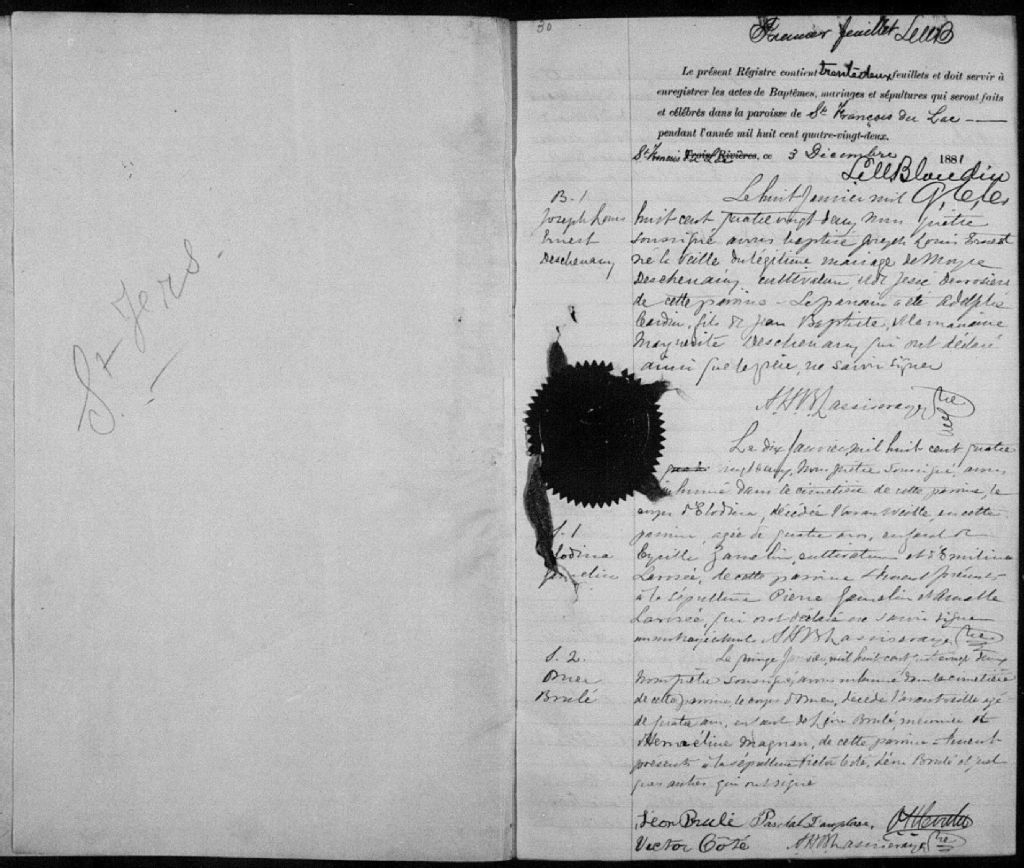 St Jers.
30
Premier feuillet
Le présent Régistre contient trente deux feuillets et doit servir à
enregistrer les actes de Baptêmes, mariages et sépultures qui seront faits
et célébrés dans la paroisse de St François du Lac
pendant l'année mil huit cent quatre-vingt-deux.
St François du Lac Trois-Rivières, ce 3 Décembre 1881
B. 1
Joseph Louis
Ernest
Deschenaux
Le huit Janvier mil
huit cent quatre vingt deux, nous prêtre
soussigné avons baptisé Joseph Louis Ernest
né la veille du légitime mariage de Moyse
Deschenaux, cultivateur et de
de cette paroisse - Le parrain a été Adolphe
fils de Jean Baptiste, la marraine
Marguerite Deschenaux qui ont déclaré
ainsi que le père, ne savoir signer
ptre
S. 1
Elodina
Le dix Janvier, mil huit cent quatre
vingt deux, nous prêtre soussigné, avons
inhumé dans le cimetière de cette paroisse, le
corps d'Elodina, décédée l'avant veille, en cette
paroisse, agée de quatre ans, enfant de
Cyrille cultivateur et d'Emilina
de cette paroisse. Furent présents
à la sépulture Pierre et
qui ont déclaré ne savoir signer
ptre
S. 2.
Omer
Brulé
Le quinze Janvier, mil huit cent quatre vingt deux
Nous prêtre soussigné avons inhumé dans le cimetière
de cette paroisse, le corps d'Omer, décédé l'avant veille agé
de quatre ans, enfant de Léon Brulé, et
d'Herméline Magnan, de cette paroisse. Furent
présents à la sépulture Victor Coté, Léon Brulé et quel
ques autres qui ont signé
Léon Brulé
Victor Côté ptre